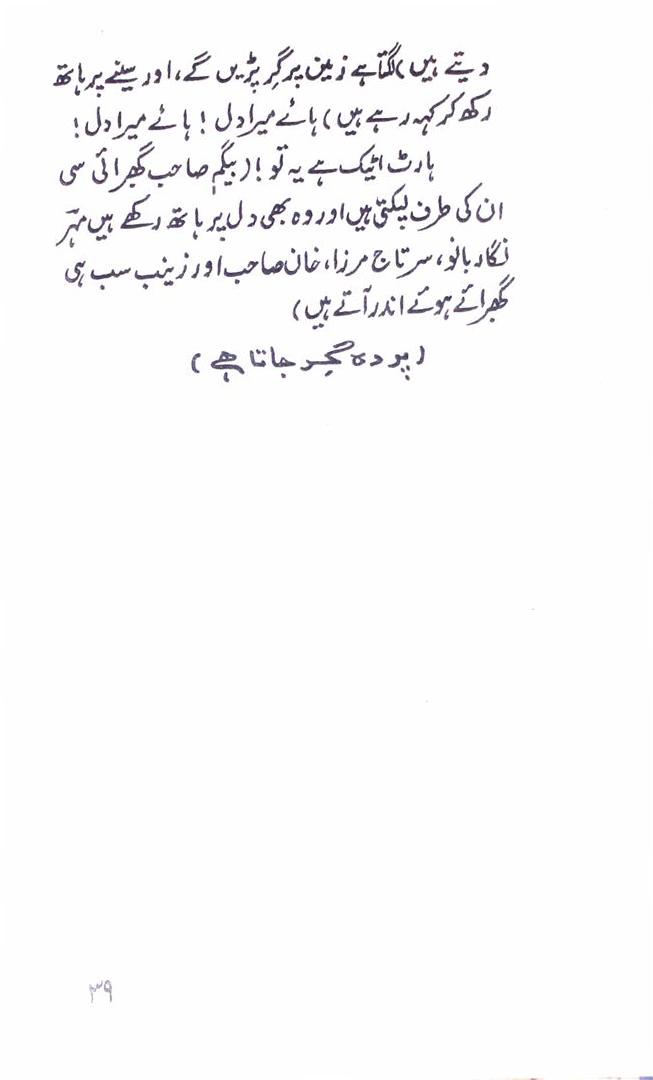 دیتے ہیں) لگتا ہے زمین پر گر پڑیں گے، اور سینے پر ہاتھ
رکھ کر کہہ رہے ہیں) ہائے میرا دل! ہائے میرا دل!
ہارٹ اٹیک ہے یہ تو! (بیگم صاحب گھبرائی سی
ان کی طرف لپکتی ہیں اور وہ بھی دل پر ہاتھ رکھے ہیں مہر
نگار بانو، سرتاج مرزا، خان صاحب اور زینب سب ہی
گھبرائے ہوئے اندر آتے ہیں)
(پردہ گِر جاتا ہے)
۳۹